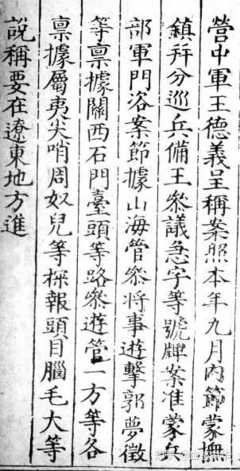 營中軍王德義呈稱案照本年九月內節蒙撫
鎮并分巡兵備王叅議急字等號牌案准蒙兵
部軍門咨案節據山海管叅將事遊擊郭夢徵
等禀據關西石門臺頭等路叅遊管一方等各
禀據屬夷尖哨周奴兒等探報頭目腦毛大等
說稱要在遼東地方進